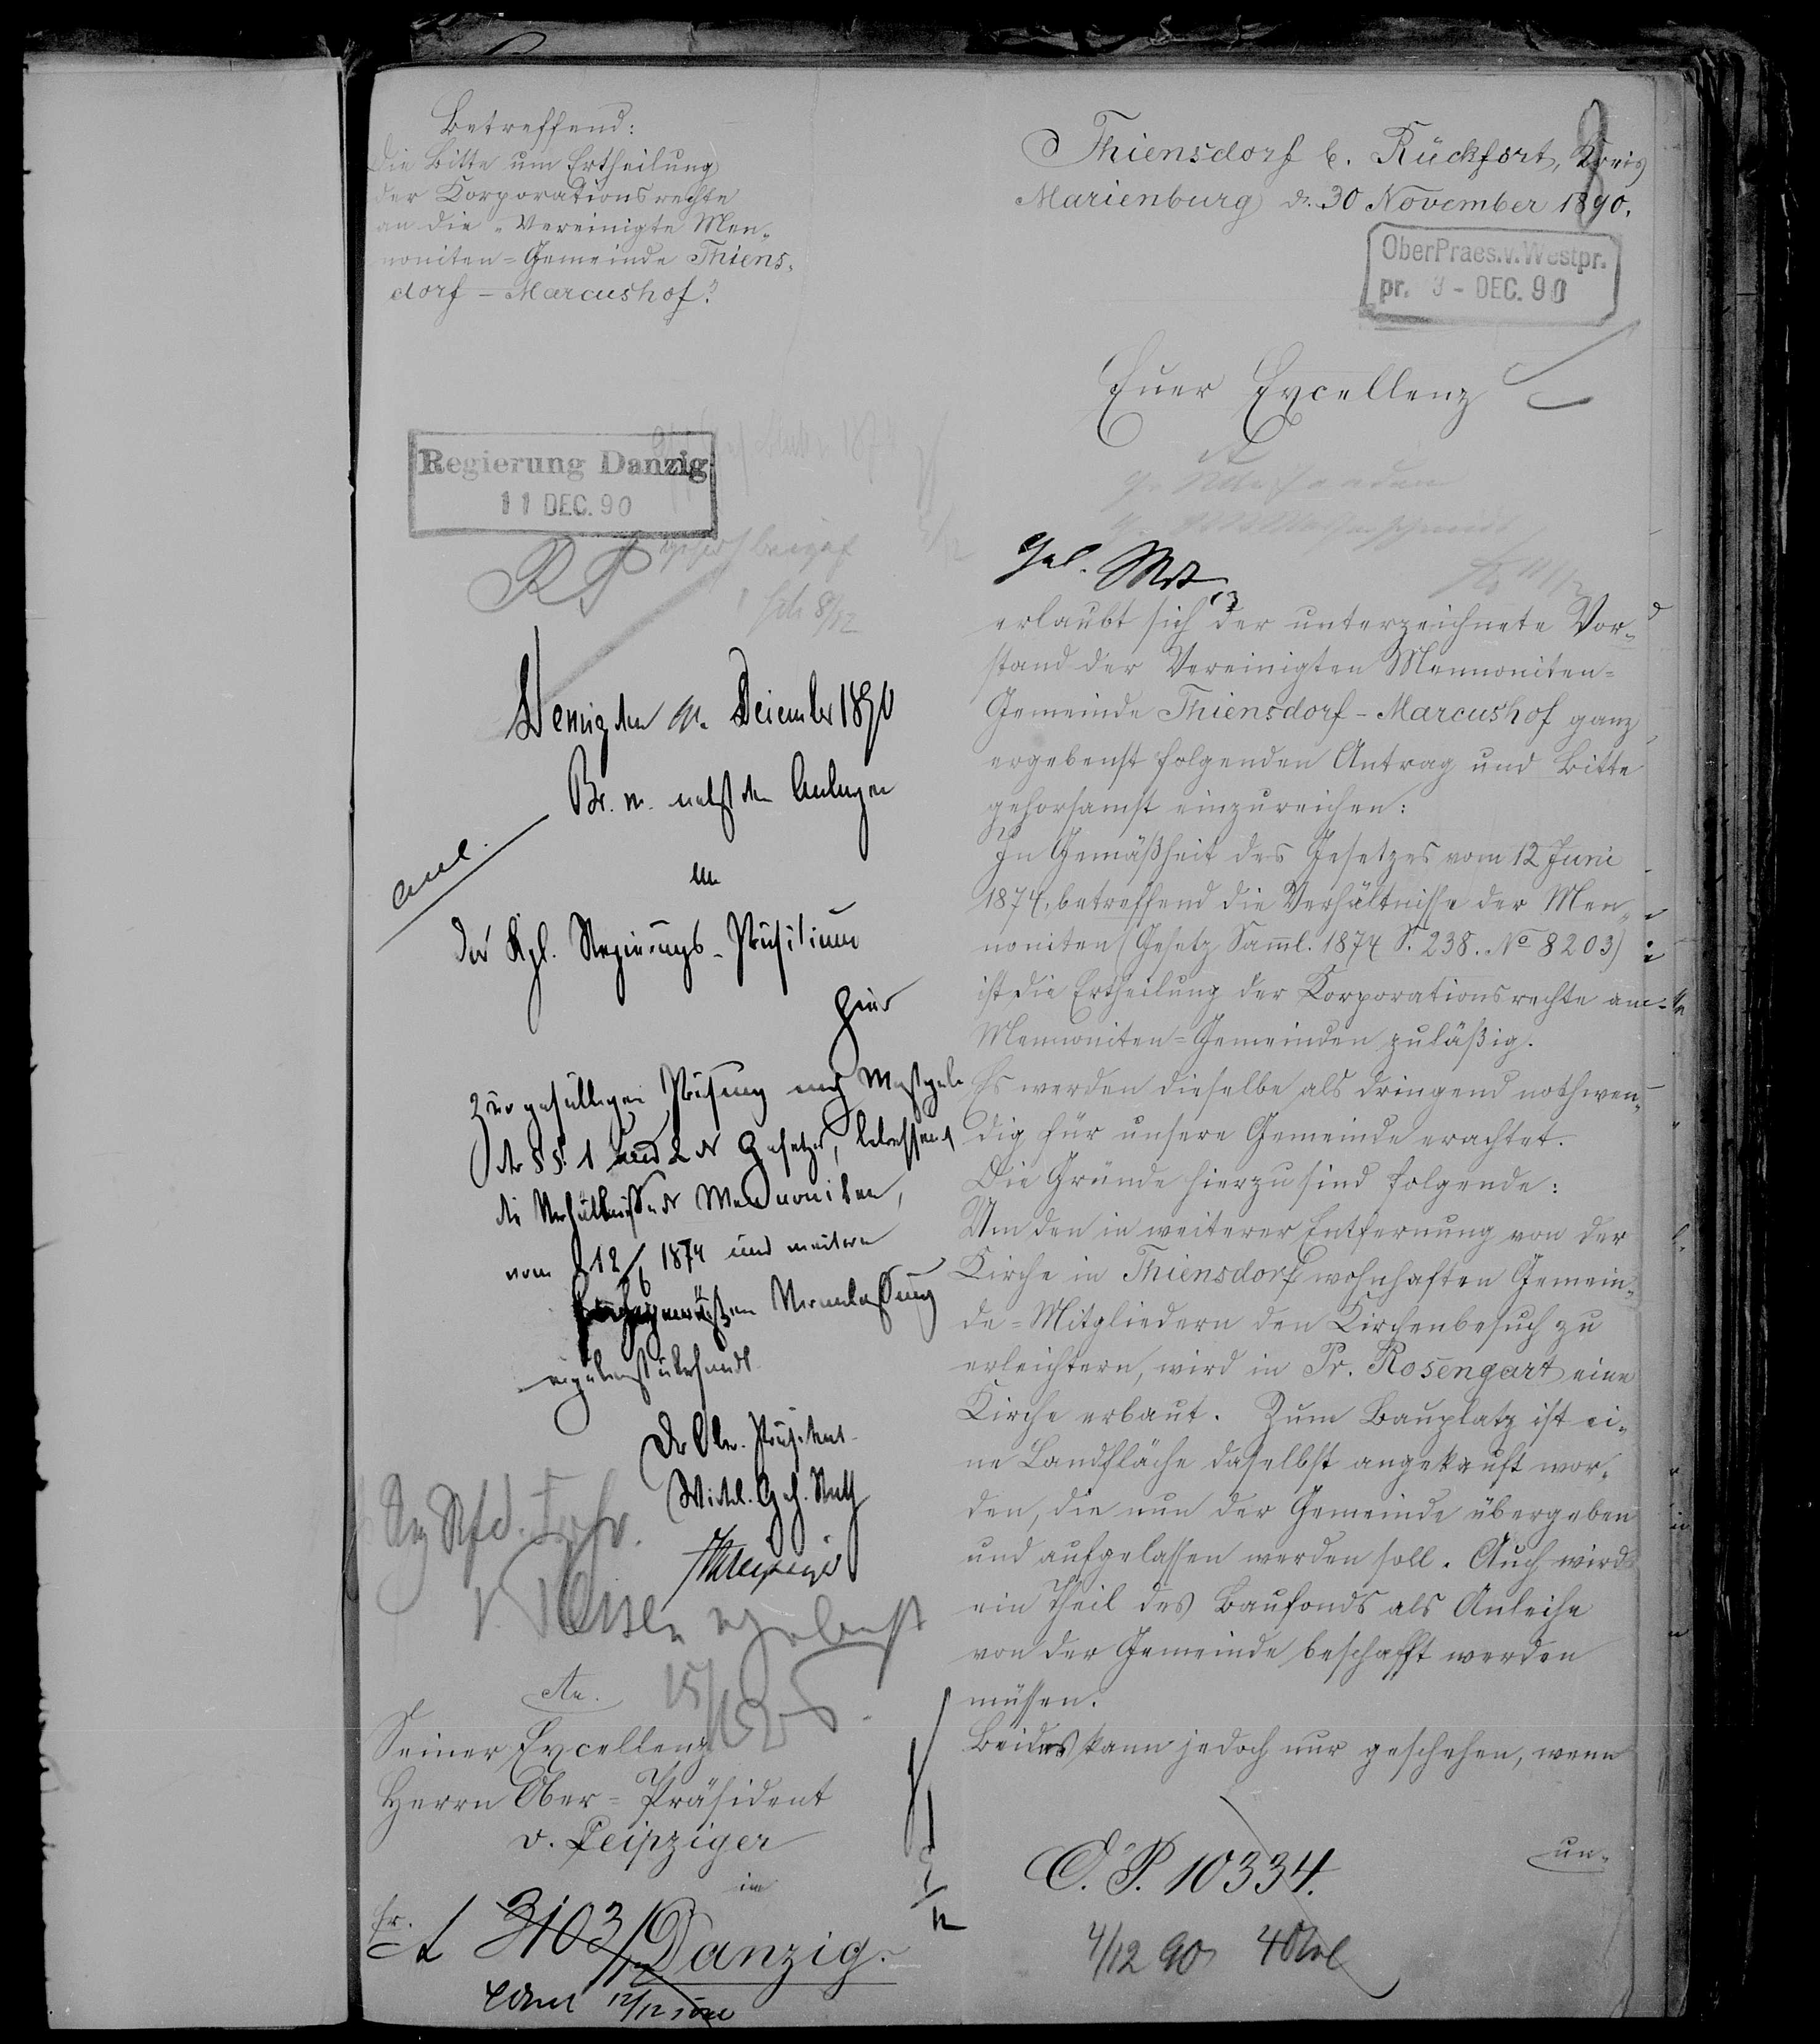 Betreffend:
die Bitte um Ertheilung
der Korporationsrechte
an die „Vereinigte Men-
noniten-Gemeinde Thiens-
dorf-Marcushof“?
Regierung Danzig
11 DEC. 90
Danzig den 10. December 1890
Br. m. nebst den Anlagen
an
das Kgl. Regierungs-Präsidium
hier
zur gefälligen Prüfung nach Maßgabe
der §§. 1 und 2 des Gesetzes, betreffend
die Verhältnisse der Mennoniten,
vom 12/6 1874 und weitern
Veranlassung
ergebenst übersandt.
Der Ober-Präsident
Wirkl. Geh. Rath
v. Leipziger
ergebenst
15/12
An.
Seiner Excellenz
Herrn Ober-Präsident
v. Leipziger
in
Danzig.
3103
12/12
Thiensdorf b. Rückfort, Kreis
Marienburg d. 30 November 1890.
OberPraes.v.Westpr.
pr. 3 - DEC. 90
Euer Excellenz
erlaubt sich der unterzeichnete Vor-
stand der Vereinigten Mennoniten-
Gemeinde Thiensdorf-Marcushof ganz
ergebenst folgenden Antrag und Bitte
gehorsamst einzureichen:
In Gemäßheit des Gesetzes vom 12 Juni
1874, betreffend die Verhältnisse der Men-
noniten (Gesetz Samml. 1874 S. 238. No 8203)
ist die Ertheilung der Korporationsrechte an
Mennoniten-Gemeinden zuläßig.
Es werden dieselbe als dringend nothwen-
dig für unsere Gemeinde erachtet.
Die Gründe hierzu sind folgende:
Um den in weiterer Entfernung von der
Kirche in Thiensdorf wohnhaften Gemein-
de-Mitgliedern den Kirchenbesuch zu
erleichtern, wird in Pr. Rosengart eine
Kirche erbaut. Zum Bauplatz ist ei-
ne Landfläche daselbst angekauft wor-
den, die nun der Gemeinde übergeben
und aufgelassen werden soll. Auch wird
ein Theil des Baufonds als Anleihe
von der Gemeinde beschafft werden
müssen.
Beides kann jedoch nur geschehen, wenn
un-
O. P. 10334.
4/12 90